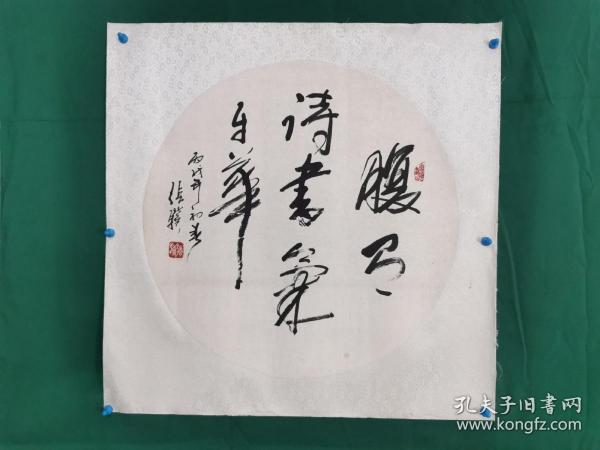 腹有
詩書氣
自華
丙戌年初春
张骥
孔夫子旧书网
www.kongfz.com